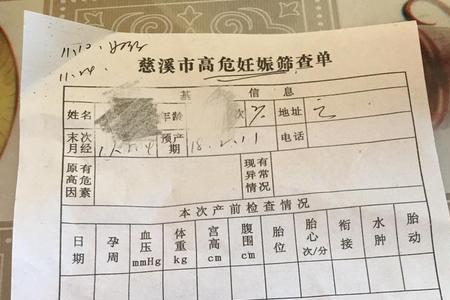 11.10.
慈溪市高危妊娠筛查单
11.24
基 信息
姓名 年龄 次 地址
末次月经 预产期 18.2.11 电话
原有高危因素 现有异常情况
本次产前检查情况
日期 孕周 血压mmHg 体重kg 宫高cm 腹围cm 胎位 胎心次/分 衔接 水肿 胎动